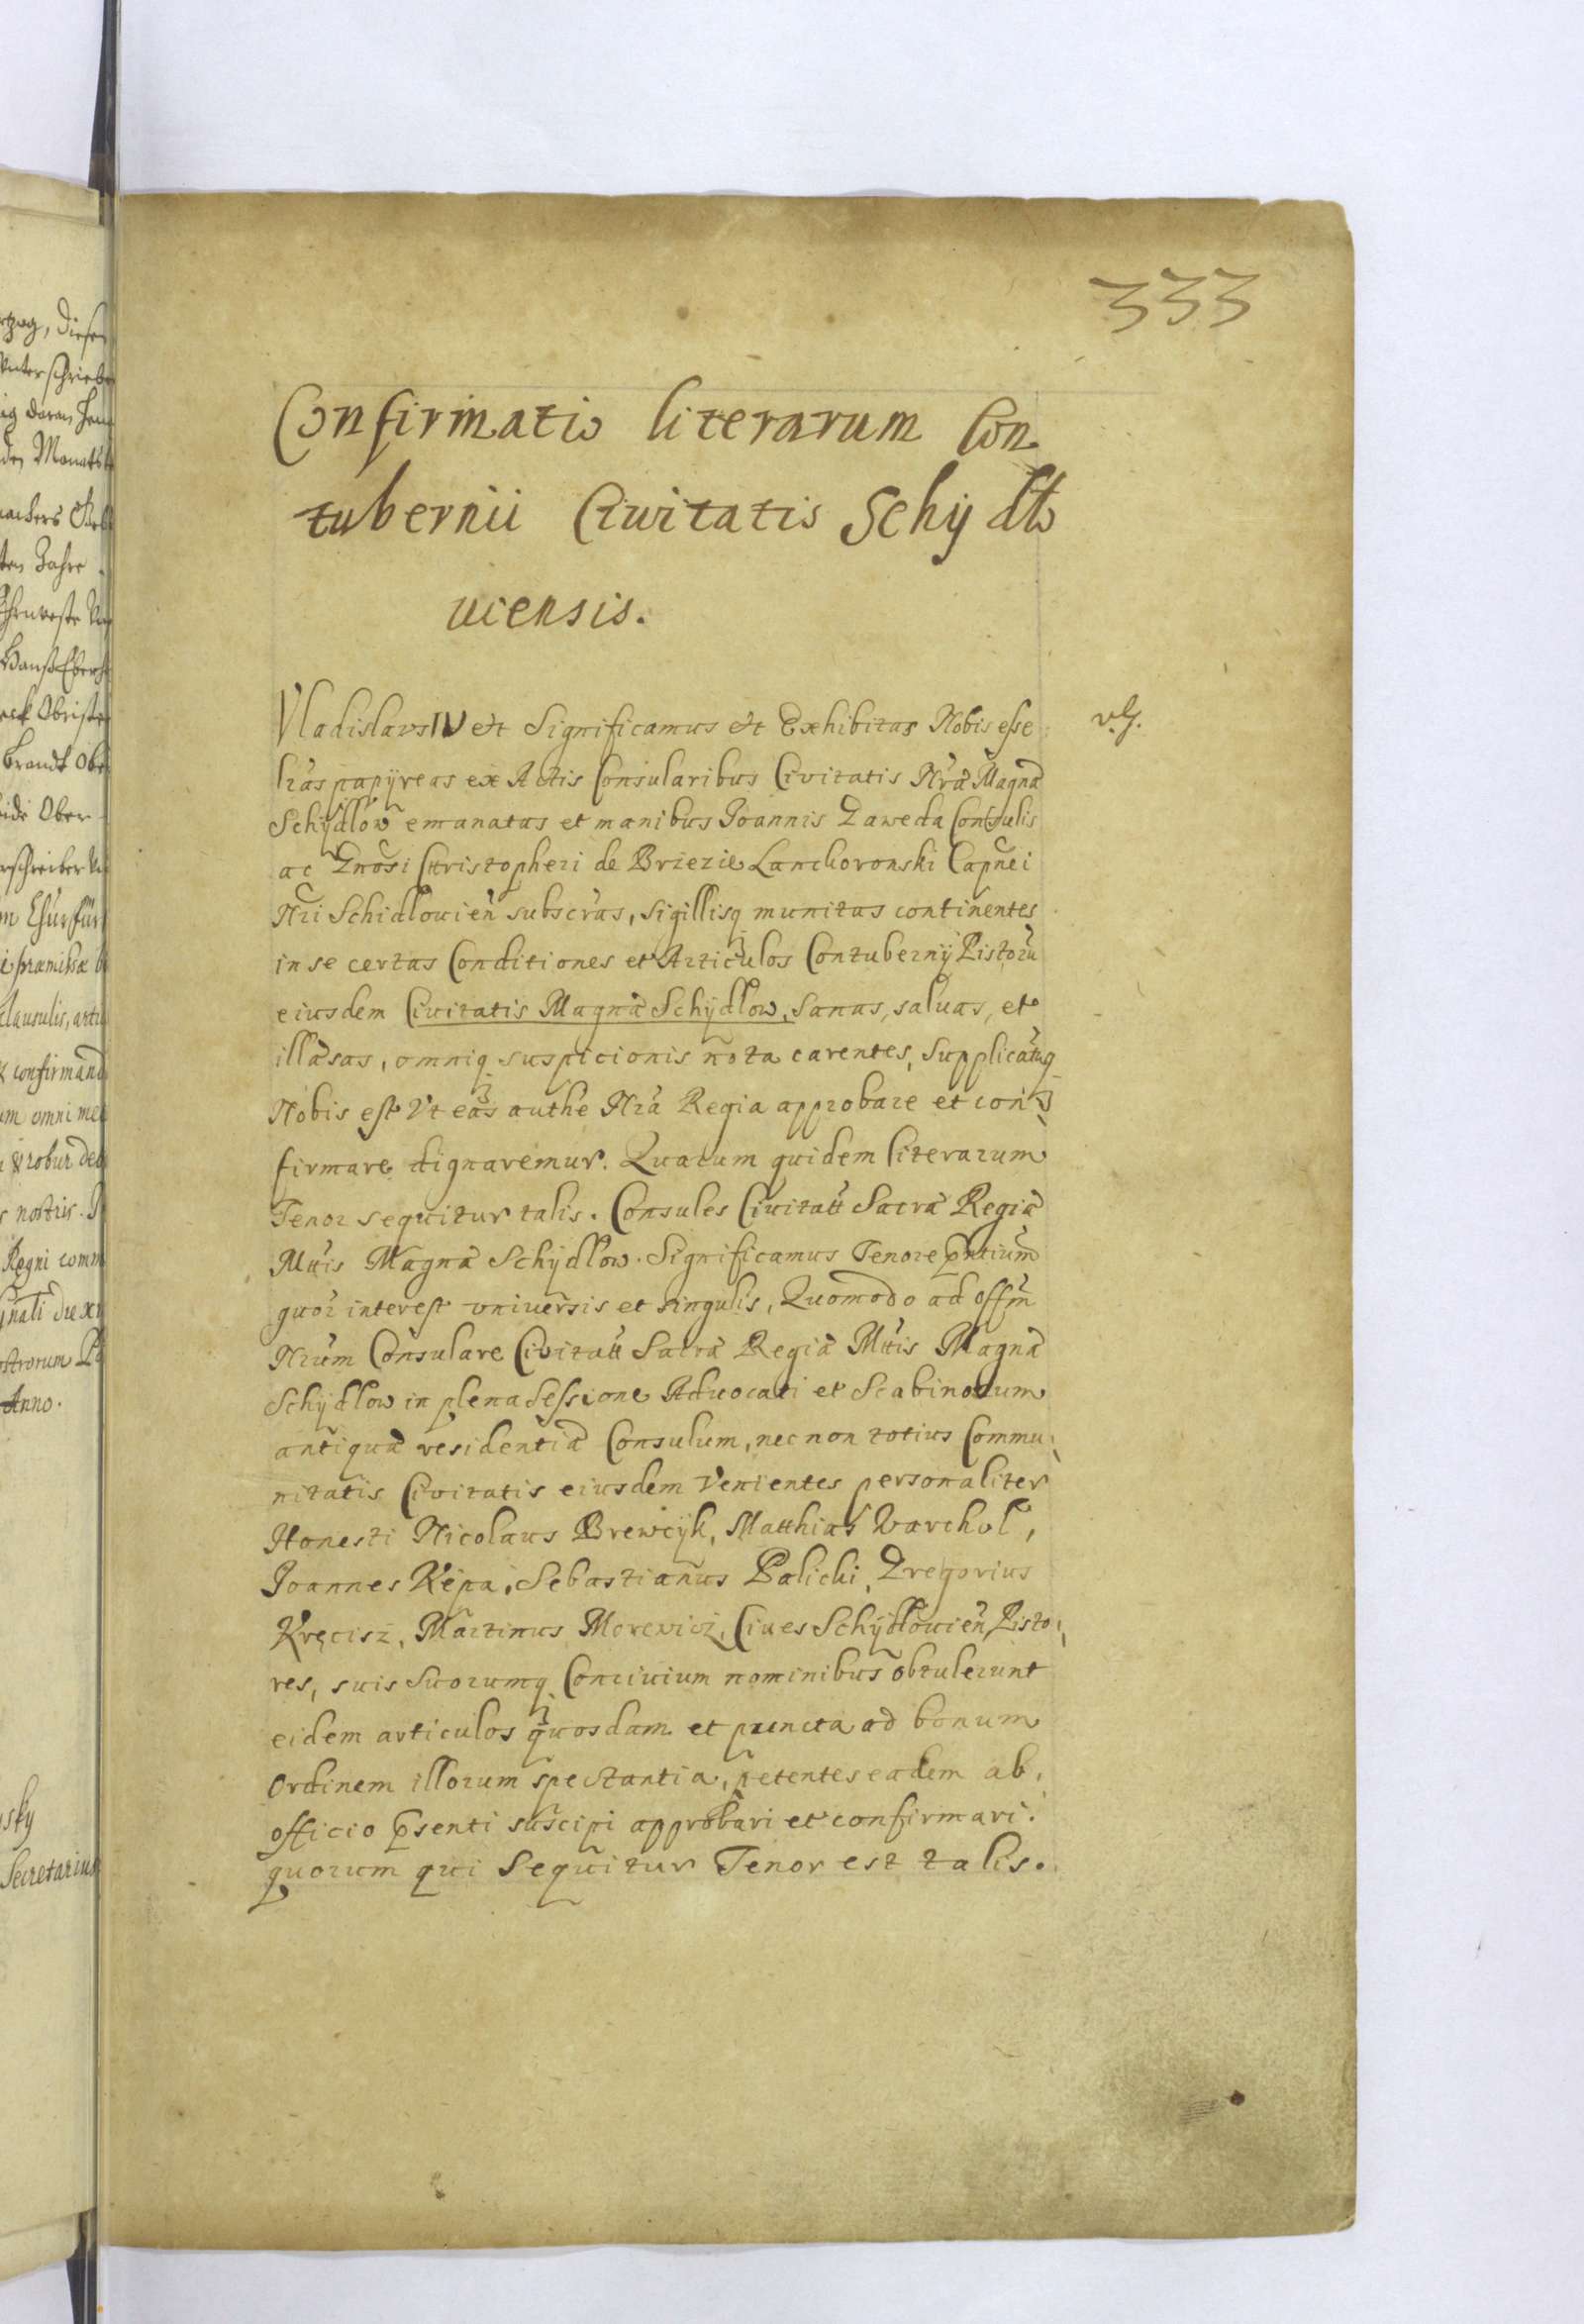 333
Confirmatio literarum Con
tubernii Civitatis Schydlo
uiensis.
Vladislaus IV etc Significamus etc Exhibitas Nobis esse
lras papyreas ex Actis Consularibus Civitatis Nræ Magnæ
Schydlow emanatas et manibus Joannis Gaweda Consulis
ac Gnosi Christopheri de Brzezie Lanckoronski Capnei
Nri Schidlouien subscras, sigillisq munitas continentes
in se certas Conditiones et Articulos Contubernij Pistorũ
eiusdem Civitatis Magnæ Schydlow, sanas, saluas, et
illæsas, omniq suspicionis nota carentes, supplicatuq
Nobis est Vt eas authe Nra Regia approbare et con
firmare dignaremur. Quarum quidem literarum
Tenor sequitur talis. Consules Civitatt Sacræ Regiæ
Mttis Magnæ Schydlow. Significamus Tenore pntium
quor interest vniuersis et singulis, Quomodo ad offm
Nrum Consulare Civitatt Sacræ Regiæ Mttis Magnæ
Schydlow in plena Sessione Aduocati et Scabinorum
antiqua residentia Consulum, nec non totius Commu
nitatis Civitatis eiusdem Venientes personaliter
Honesti Nicolaus Brewcyk, Matthias Varchol,
Joannes Kępa, Sebastianus Palichi, Gregorius
Kręcisz, Martinus Morewicz, Ciues Schydlouien Pisto
res, suis suorumq Conciuium nominibus obtulerunt
eidem articulos quosdam et puncta ad bonum
Ordinem illorum spectantia, petentes eadem ab
officio psenti suscipi approbari et confirmari.
quorum qui Sequitur Tenor est talis.